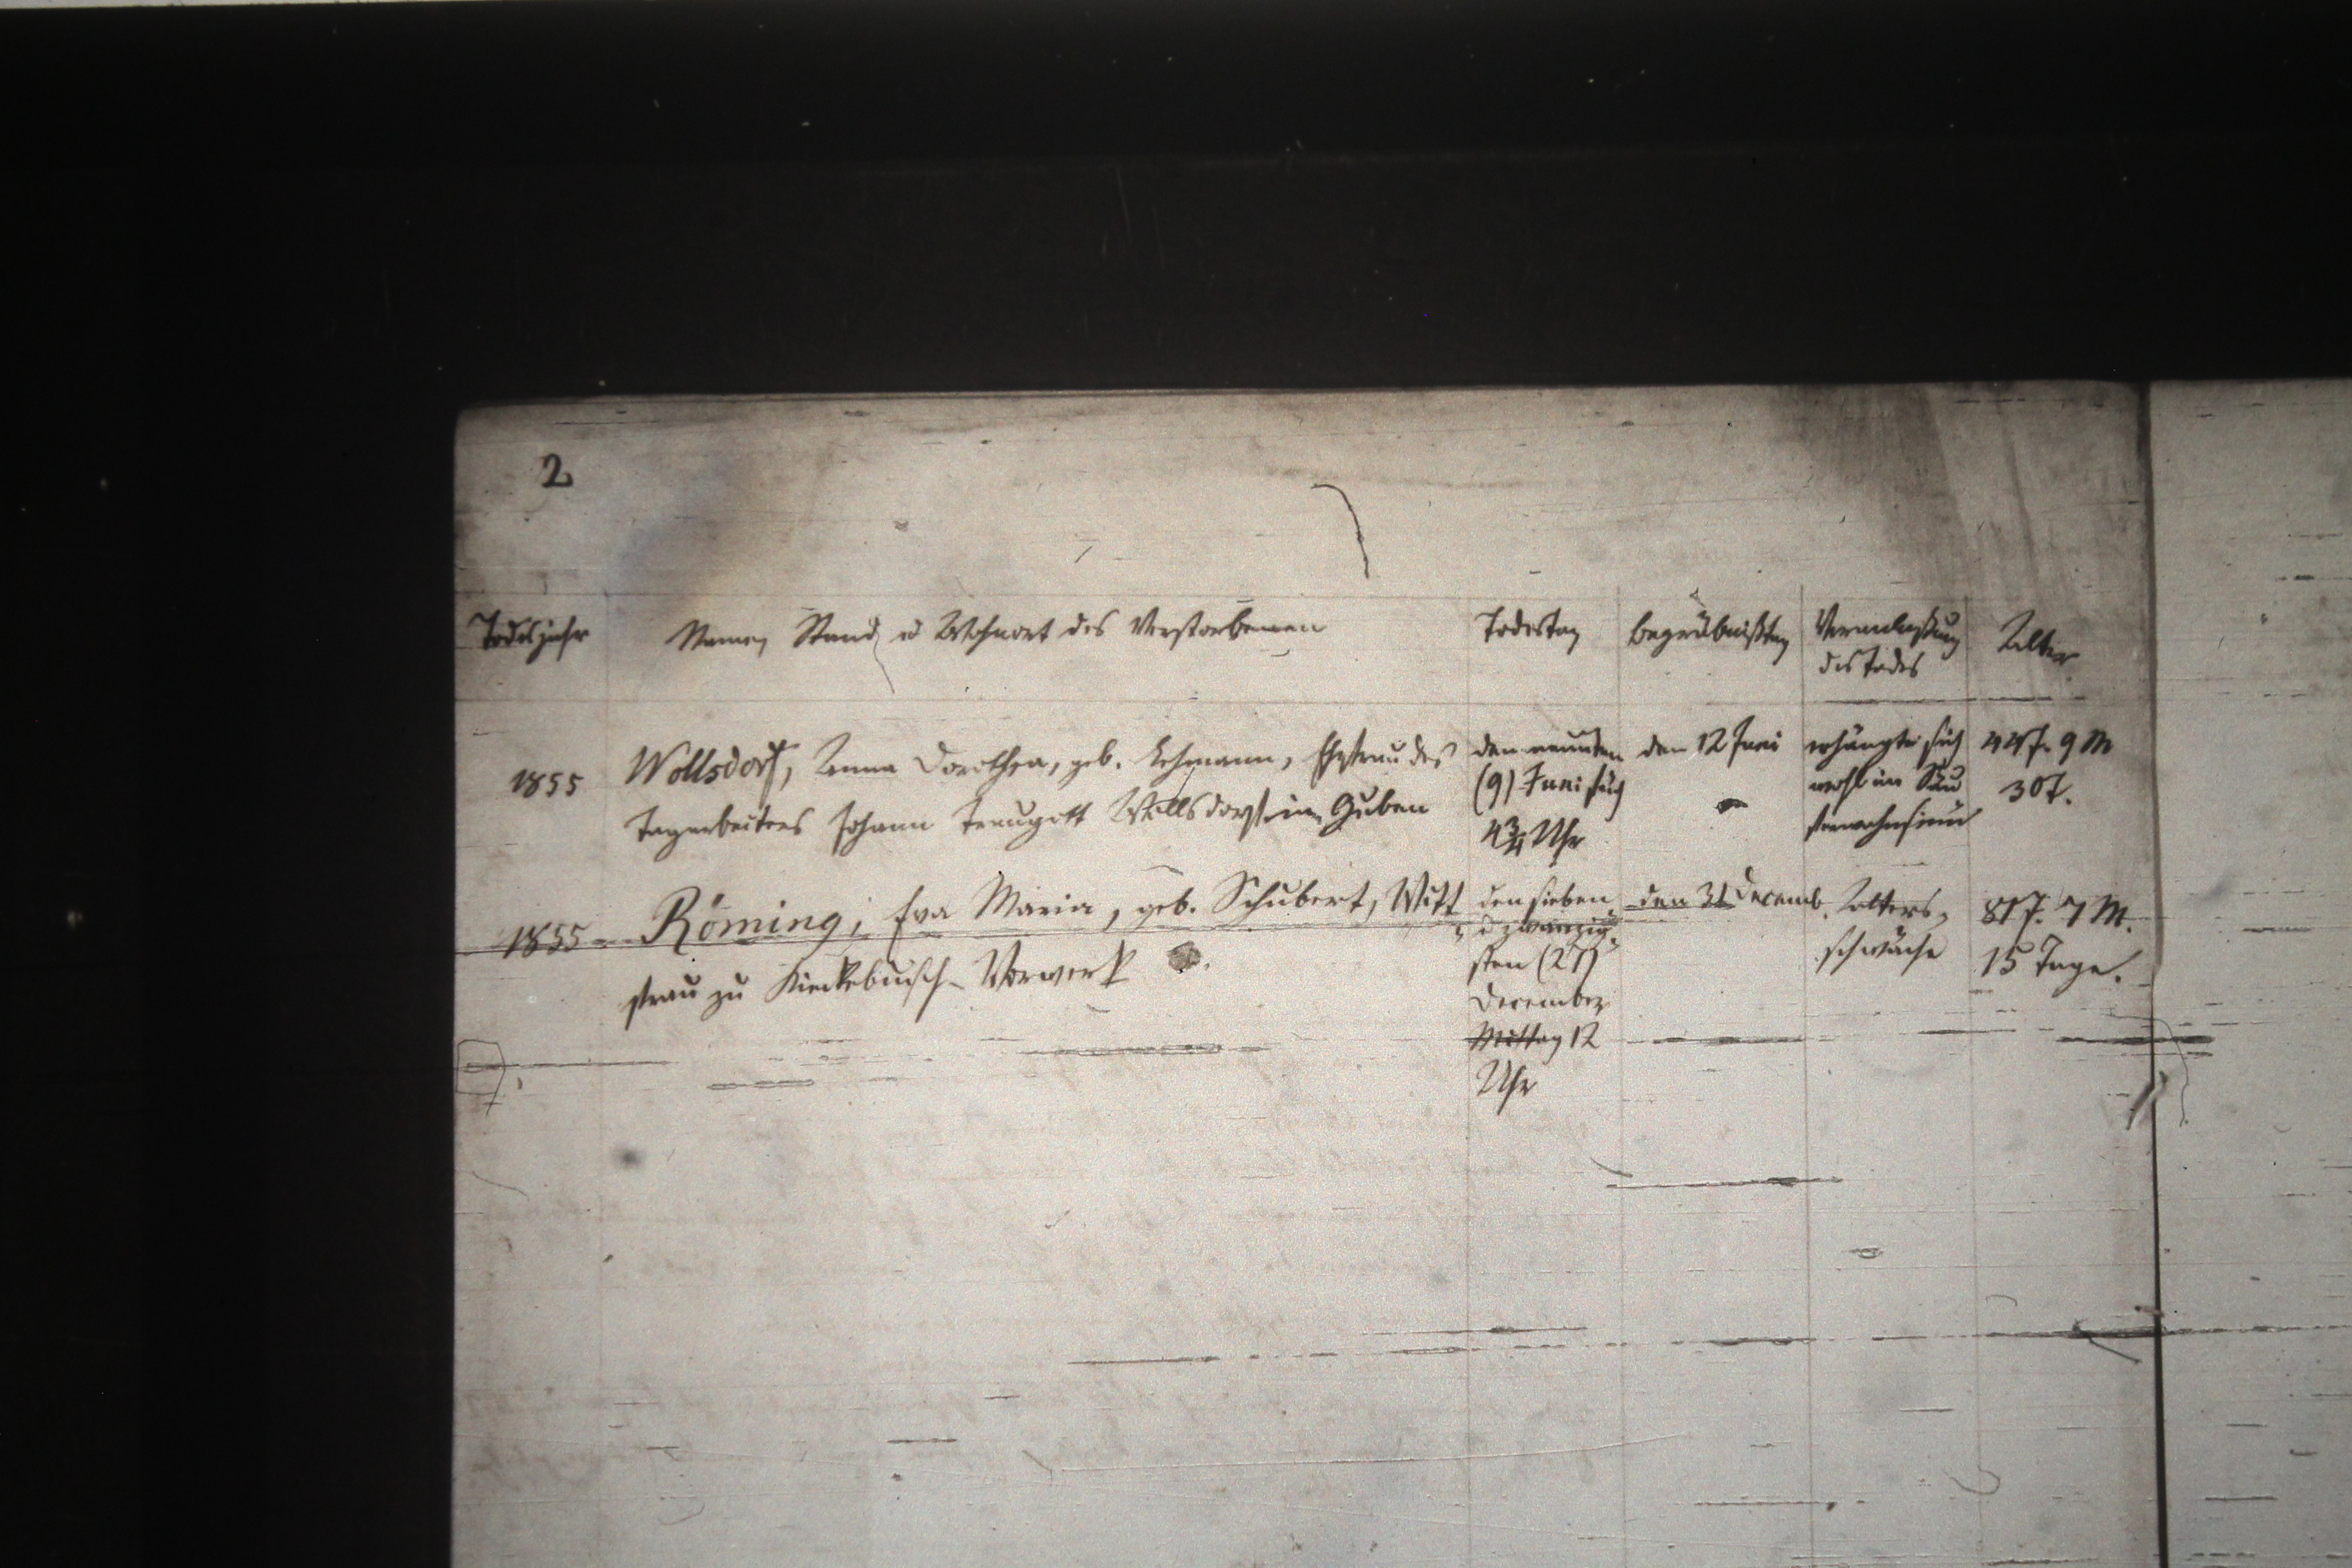 2
Todesjahr
Namen, Stand u Wohnort des Verstorbenen
Todestag
Begräbnißtag
Veranlaßung
des Todes
Alter
1855
Wollsdorf, Anna Dorothea, geb. Lehmann, Ehefrau des
Tagearbeiters Johann Traugott Wollsdorf in Guben
den neunten
(9) Juni früh
4 3/4 Uhr
den 12 Juni
erhängte sich
wohl im Säu
ferwahnsinn
44 J. 9 M
30 T.
1855
Röming, Eva Maria, geb. Schubert, Witt
frau zu Kiekebusch-Vorwerk
den sieben
dzwanzig
sten (27)
December
Mittag 12
Uhr
den 31 Decemb.
Alters-
schwäche
81 J. 7 M.
15 Tage.